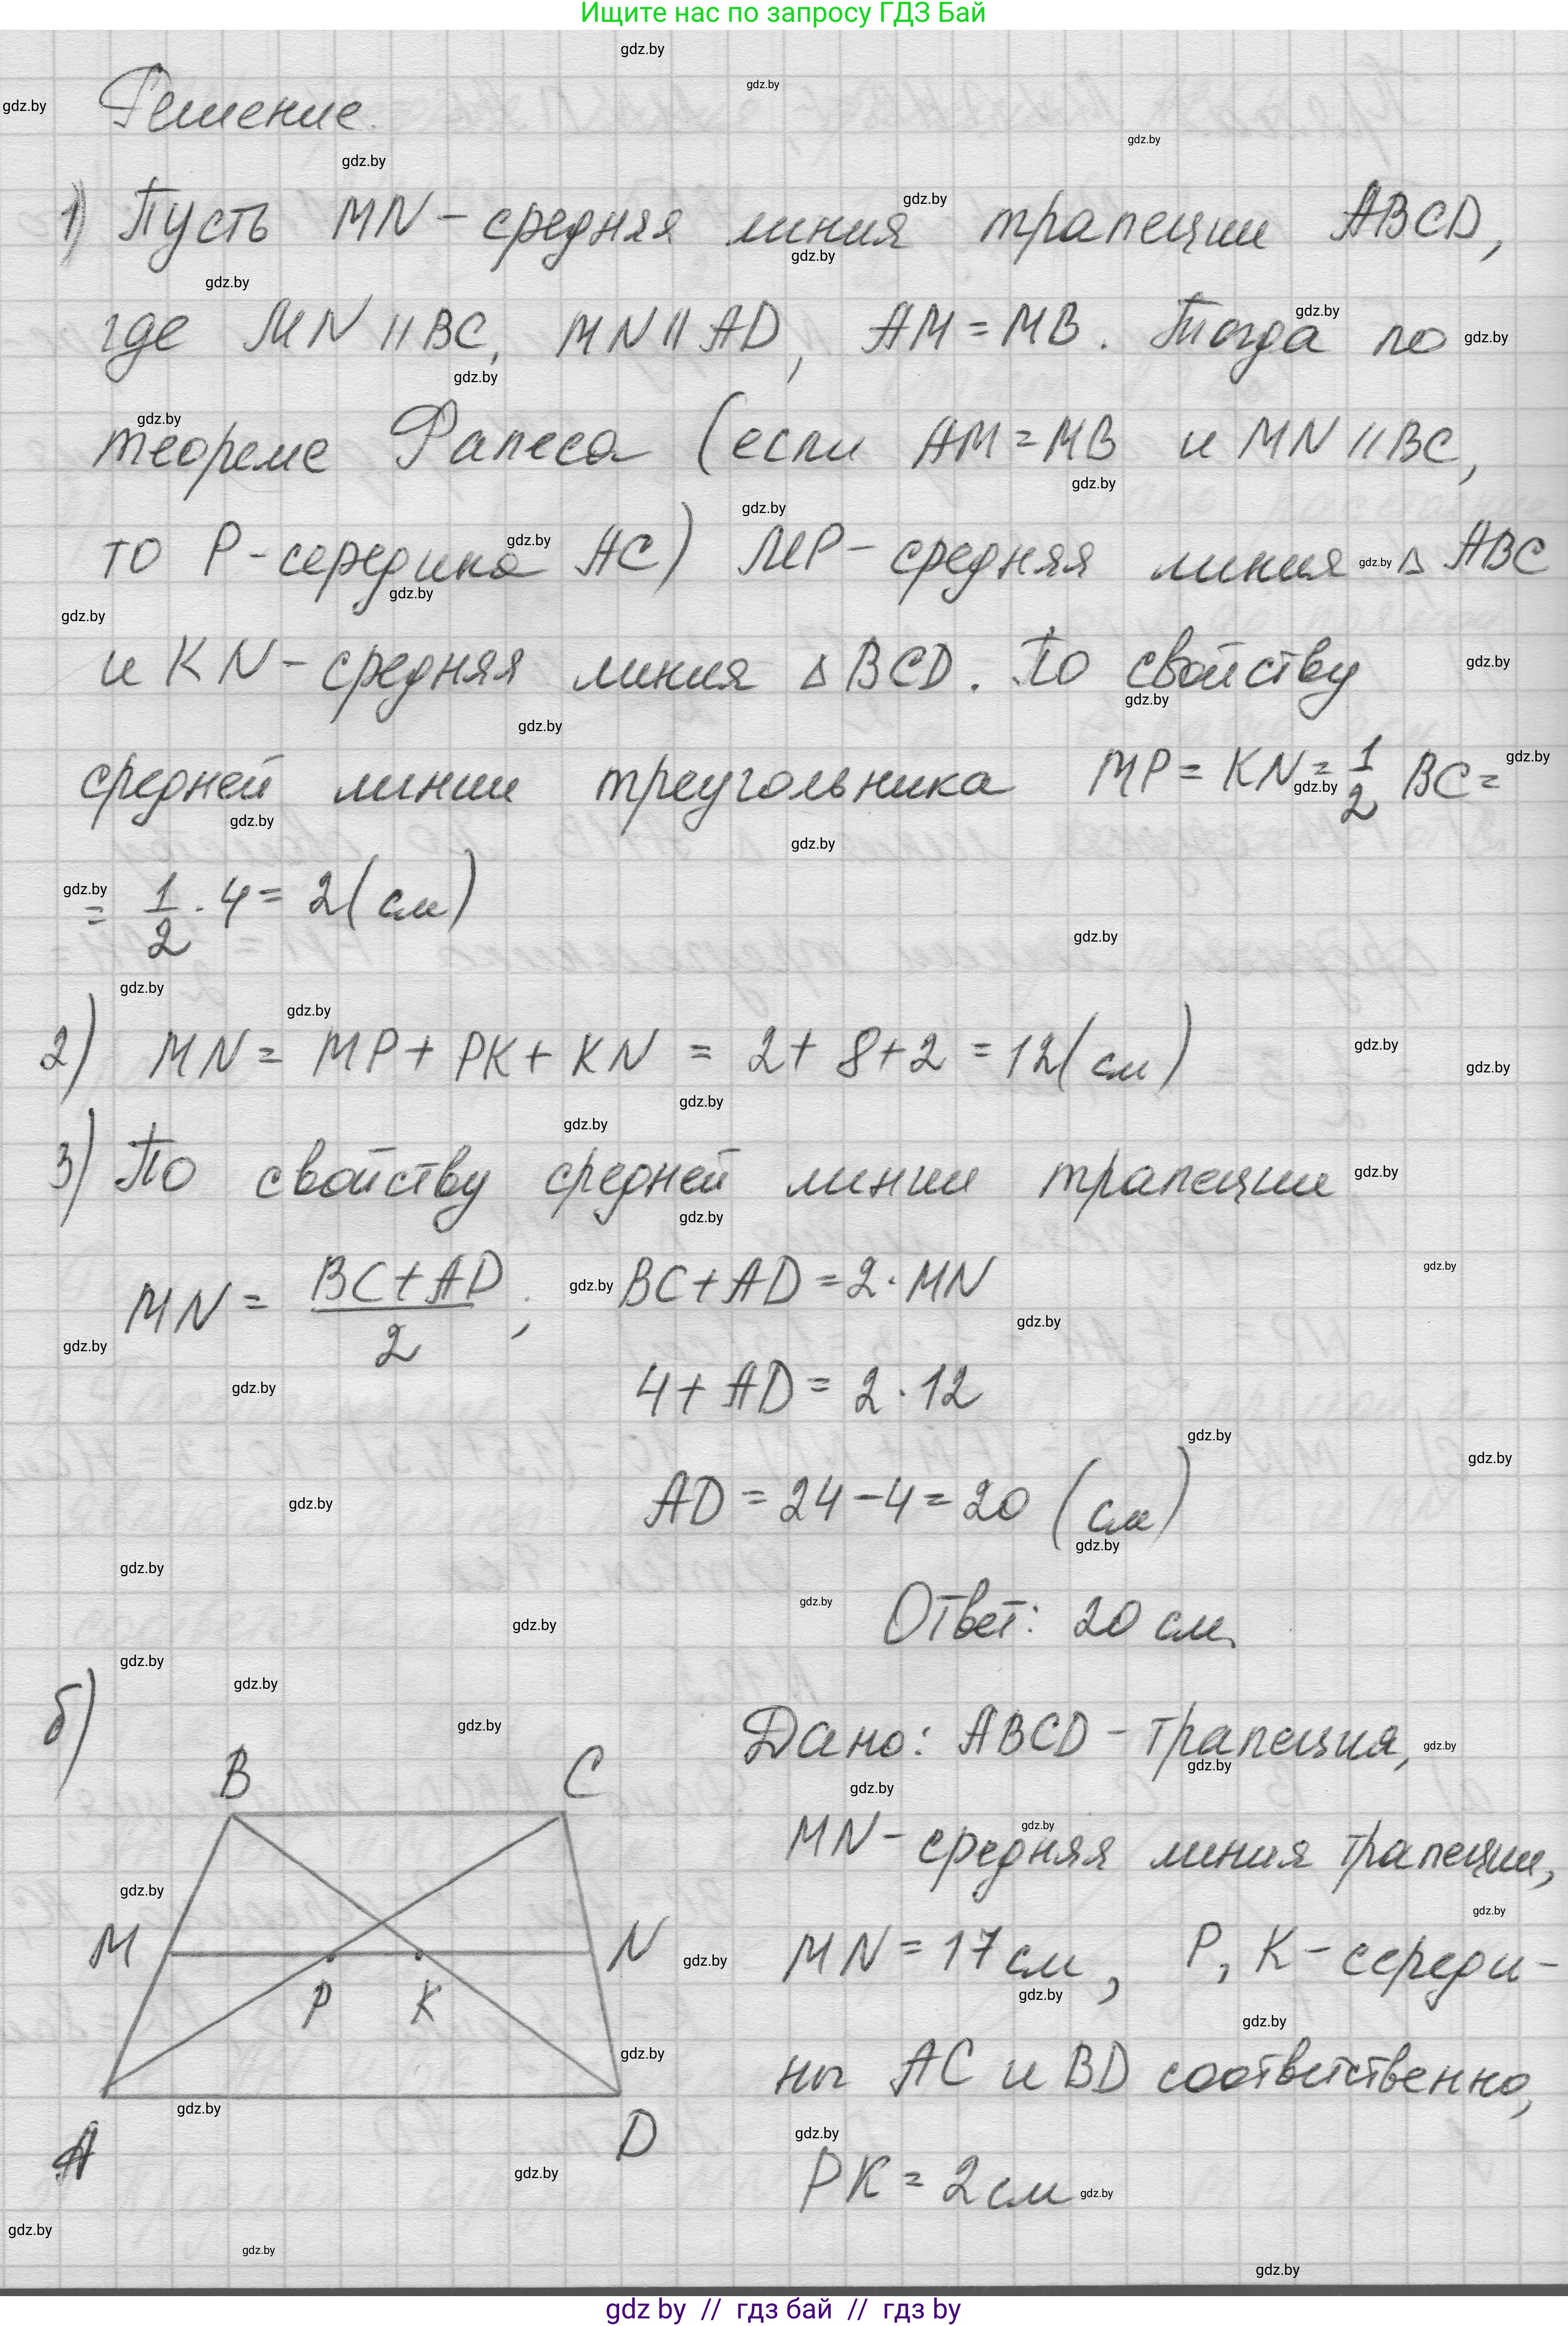 Ищите нас по запросу ГДЗ Бай
Решение.
1) Пусть MN - средняя линия трапеции ABCD,
где MN || BC, MN || AD, AM = MB. Тогда по
теореме Фалеса (если AM = MB и MN || BC,
то P - середина AC) MP - средняя линия △ ABC
и KN - средняя линия △ BCD. По свойству
средней линии треугольника MP = KN = 1/2 BC =
= 1/2 · 4 = 2 (см)
2) MN = MP + PK + KN = 2 + 8 + 2 = 12 (см)
3) По свойству средней линии трапеции
MN = (BC + AD)/2 ; BC + AD = 2 · MN
4 + AD = 2 · 12
AD = 24 - 4 = 20 (см)
Ответ: 20 см.
б)
B C
M N
P K
A D
Дано: ABCD - трапеция,
MN - средняя линия трапеции,
MN = 17 см, P, K - середи-
ны AC и BD соответственно,
PK = 2 см
gdz by // гдз бай // гдз by